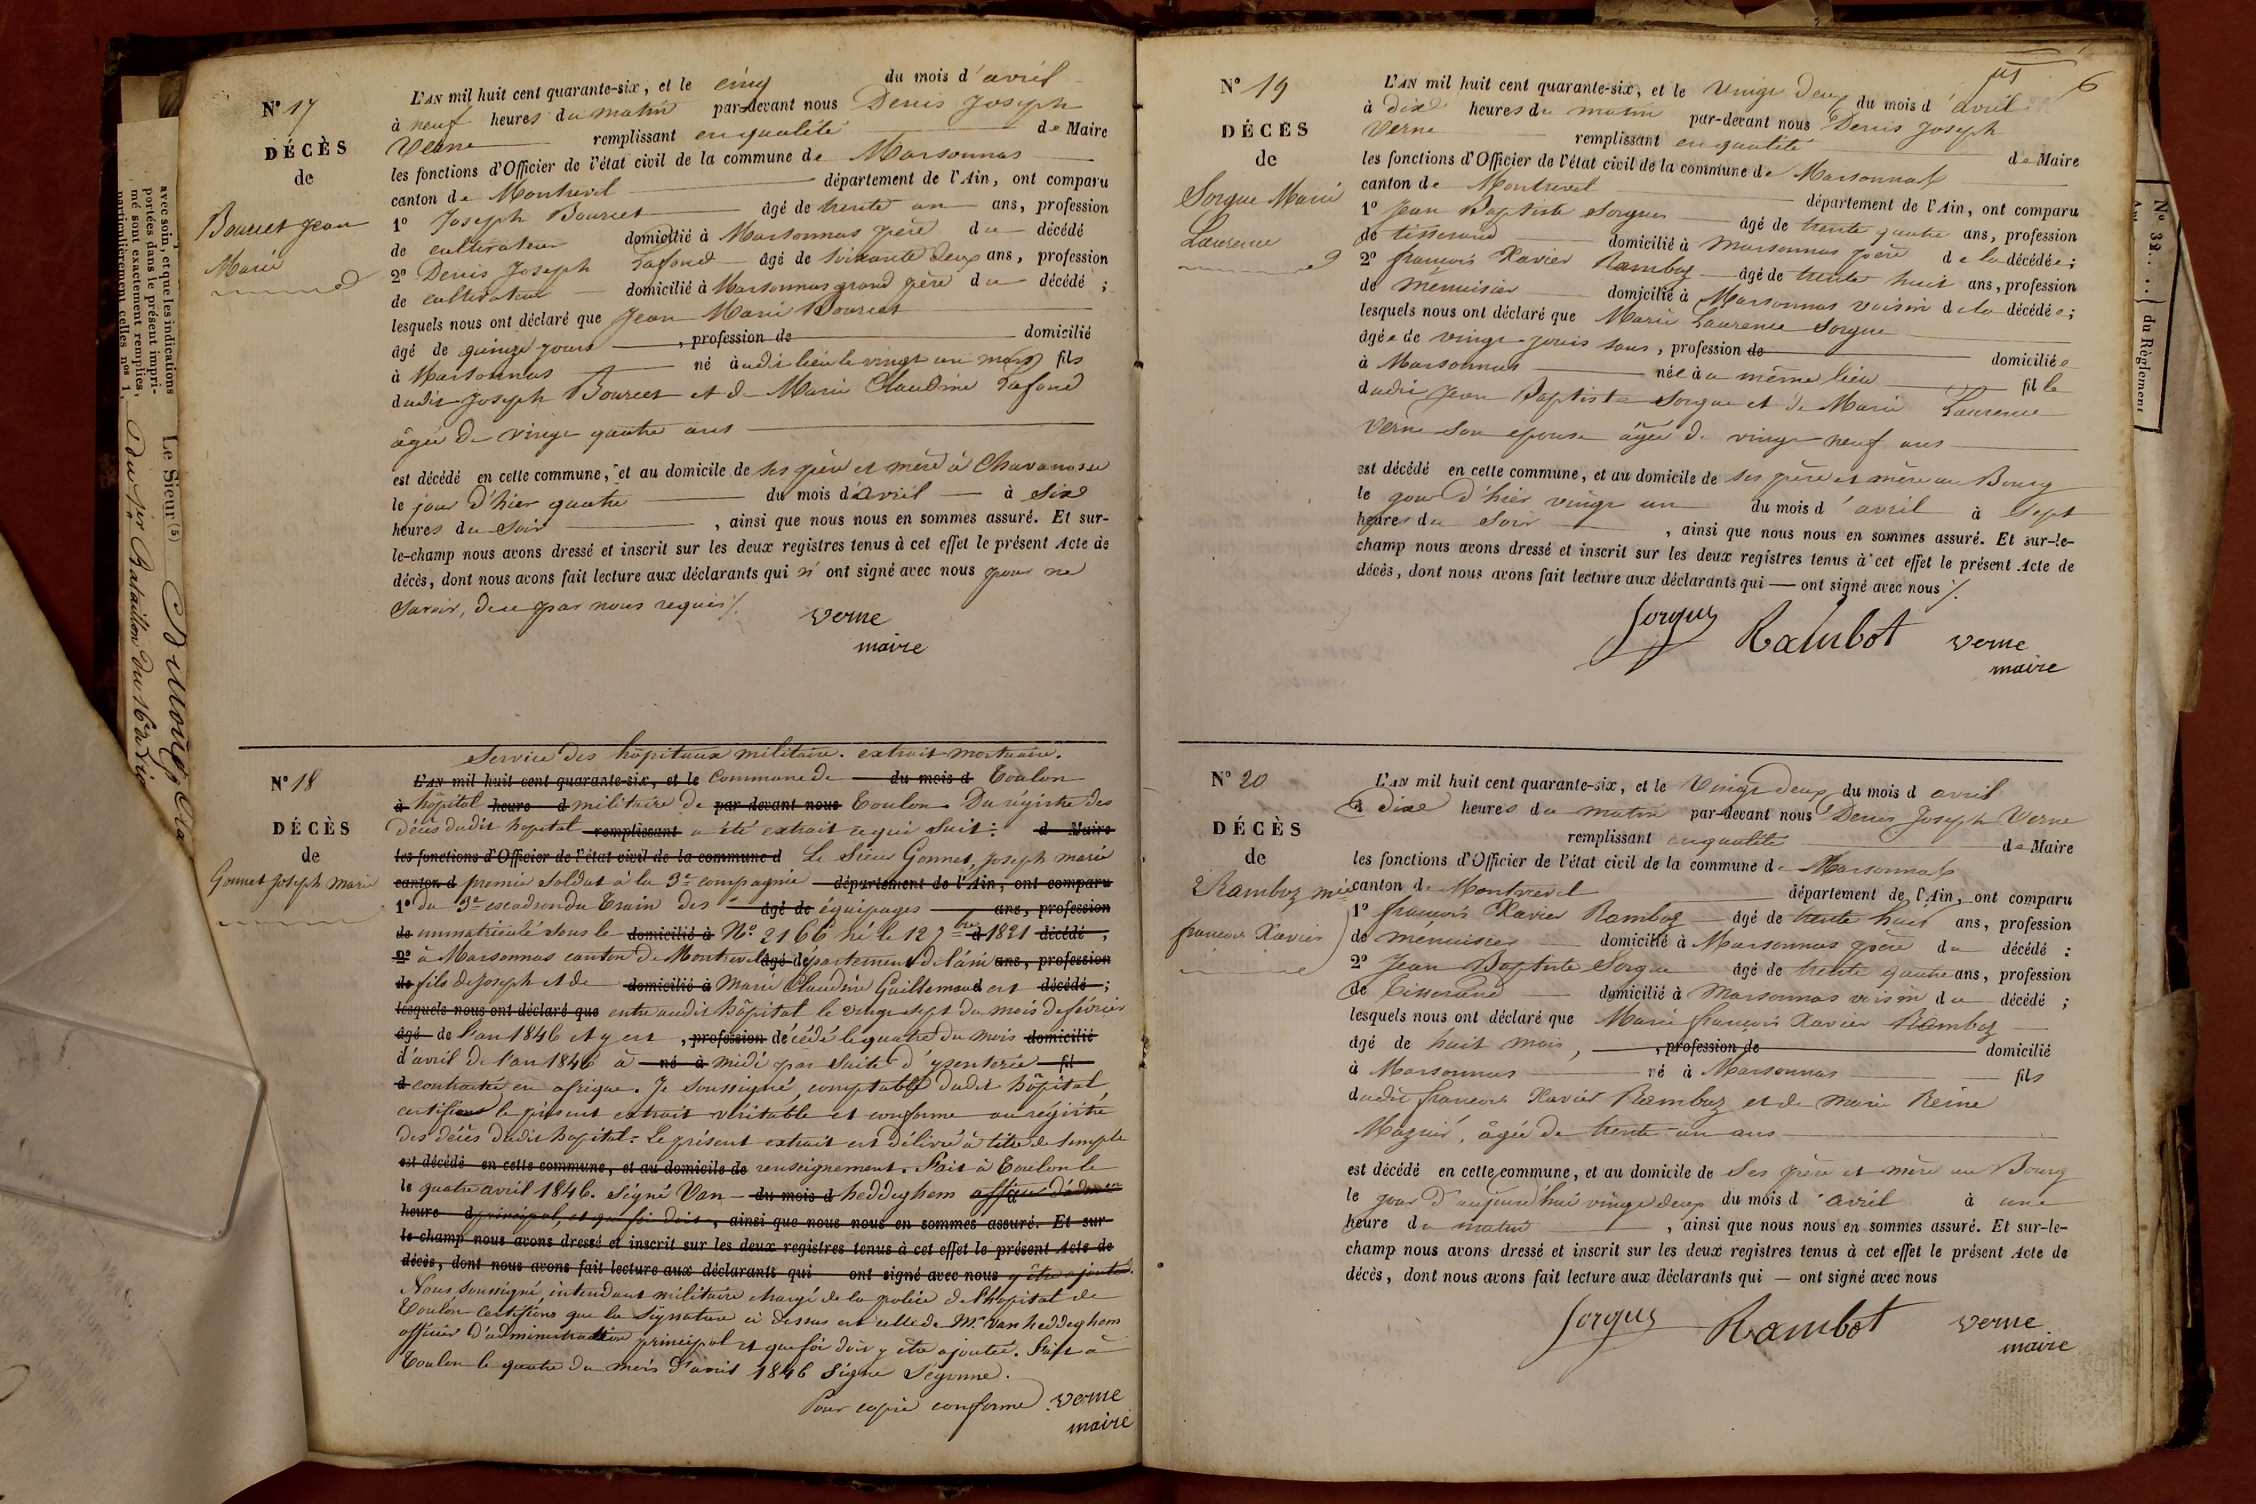 N° 17
DÉCÈS
de
Bourcet Jean
Marie
L'AN mil huit cent quarante-six, et le cinq du mois d'avril
à neuf heures du matin par-devant nous Denis Joseph
Verne remplissant en qualité de Maire
les fonctions d'Officier de l'état civil de la commune de Marsonnas
canton de Montrevel département de l'Ain, ont comparu
1° Joseph Bourcet âgé de trente un ans, profession
de cultivateur domicilié à Marsonnas père du décédé
2° Denis Joseph Lafond âgé de soixante deux ans, profession
de cultivateur domicilié à Marsonnas grand père du décédé ;
lesquels nous ont déclaré que Jean Marie Bourcet
âgé de quinze jours , profession de domicilié
à Marsonnas né audit lieu le vingt un mars fils
dudit Joseph Bourcet et de Marie Claudine Lafond
âgée de vingt quatre ans
est décédé en cette commune, et au domicile de ses père et mère à Chavanosse
le jour d'hier quatre du mois d'avril à six
heures du soir , ainsi que nous nous en sommes assuré. Et sur-
le-champ nous avons dressé et inscrit sur les deux registres tenus à cet effet le présent Acte de
décès, dont nous avons fait lecture aux déclarants qui n'ont signé avec nous pour ne
savoir, de ce par nous requis ./.
Verne
maire
N° 18
DÉCÈS
de
Gonnet Joseph Marie
Service des hôpitaux militaire. extrait mortuaire.
L'AN mil huit cent quarante-six, et le Commune de du mois d Toulon
à hôpital heure d militaire de par devant nous Toulon. Du régistre des
décès dudit hopital remplissant a été extrait ce qui suit : d Maire
les fonctions d'Officier de l'état civil de la commune d Le Sieur Gonnet, Joseph marie
canton d premier soldat à la 3e compagnie département de l'Ain, ont comparu
1° du 3e escadron du train des âgé de équipages ans, profession
de immatriculé sous le domicilié à N° 2166 né le 12 7bre d 1821 décédé ,
2° à Marsonnas canton de Montrevel âgé département de l'ain ans, profession
de fils de Joseph et de domicilié à Marie Claudine Guillemaud est décédé ;
lesquels nous ont déclaré que entré audit hôpital le vingt sept du mois de février
âgé de l'an 1846 et y est , profession décédé le quatre du mois domicilié
d'avril de l'an 1846 à né à midi par suite d'ysenterie fil
d contractée en afrique. Je soussigné, comptable dudit hôpital,
certifions le présent extrait véritable et conforme au régistre
des décès dudit hopital. Le présent extrait est délivré à titre de simple
est décédé en cette commune, et au domicile de renseignement. Fait à Toulon le
le quatre avril 1846. Signé Van du mois d heddeghem
heure d principal, et que foi doit , ainsi que nous nous en sommes assuré. Et sur
le champ nous avons dressé et inscrit sur les deux registres tenus à cet effet le présent Acte de
décès, dont nous avons fait lecture aux déclarants qui ont signé avec nous y être ajoutée.
Nous soussigné, intendant militaire chargé de la police de l'hopital de
Toulon certifions que la signature ci dessus est celle de Mr. Van heddeghem
officier d'administration principal et que foi doit y être ajoutée. Fait à
Toulon le quatre du mois d'avril 1846 Signé
Pour copie conforme. Verne
maire
6
N° 19
DÉCÈS
de
Sorgue Marie
Laurence
L'AN mil huit cent quarante-six, et le vingt deux du mois d'avril
à dix heures du matin par-devant nous Denis Joseph
Verne remplissant en qualité de Maire
les fonctions d'Officier de l'état civil de la commune de Marsonnas
canton de Montrevel département de l'Ain, ont comparu
1° Jean Baptiste Sorgues âgé de trente quatre ans, profession
de tisserand domicilié à Marsonnas père de la décédée ;
2° françois Xavier Ramboz âgé de trente huit ans, profession
de ménuisier domicilié à Marsonnas voisin de la décédée ;
lesquels nous ont déclaré que Marie Laurence Sorgue
âgée de vingt-jours , profession de domiciliée
à Marsonnas née au même lieu fille
dudit Jean Baptiste Sorgue et de Marie Laurence
Verne son épouse âgée de vingt neuf ans
est décédé en cette commune, et au domicile de ses père et mère au Bourg
le jour d'hier vingt un du mois d'avril à sept
heures du soir , ainsi que nous nous en sommes assuré. Et sur-le-
champ nous avons dressé et inscrit sur les deux registres tenus à cet effet le présent Acte de
décès, dont nous avons fait lecture aux déclarants qui — ont signé avec nous ./.
Sorgues Rambot Verne
maire
N° 20
DÉCÈS
de
Ramboz mie
françois Xavier
L'AN mil huit cent quarante-six, et le vingt deux du mois d avril
à dix heures du matin par-devant nous Denis Joseph Verne
remplissant en qualité de Maire
les fonctions d'Officier de l'état civil de la commune de Marsonnas
canton de Montrevel département de l'Ain, ont comparu
1° françois Xavier Ramboz âgé de trente huit ans, profession
de ménuisier domicilié à Marsonnas père du décédé :
2° Jean Baptiste Sorgue âgé de trente quatre ans, profession
de tisserand domicilié à Marsonnas voisin du décédé ;
lesquels nous ont déclaré que Marie françois Xavier Ramboz
âgé de huit mois, , profession de domicilié
à Marsonnas né à Marsonnas fils
dudit françois Xavier Ramboz et de Marie Reine
Magnié, âgée de trente un ans
est décédé en cette commune, et au domicile de ses père et mère au Bourg
le jour d'aujourd'hui vingt deux du mois d'avril à une
heure du matin , ainsi que nous nous en sommes assuré. Et sur-le-
champ nous avons dressé et inscrit sur les deux registres tenus à cet effet le présent Acte de
décès, dont nous avons fait lecture aux déclarants qui — ont signé avec nous
Sorgues Rambot Verne
maire
avec soin, et que les indications
portées dans le présent impri-
mé sont exactement remplies,
particulièrement celles nos 1,
Le Sieur (5)
du 1er Bataillon du 16e
N° 32
du Règlement